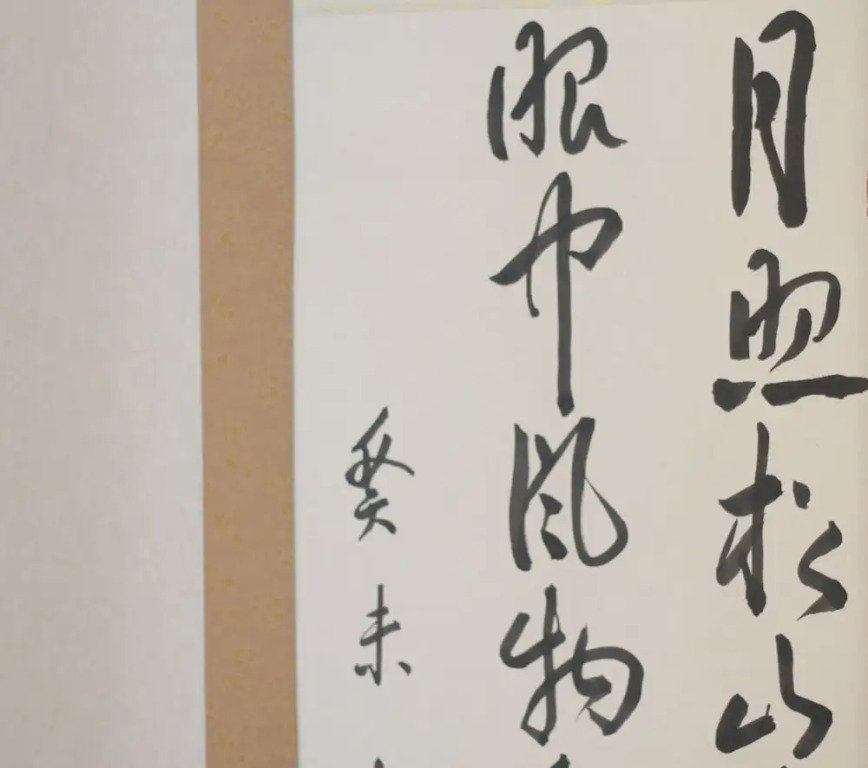 月照松山
眼中风物
癸未